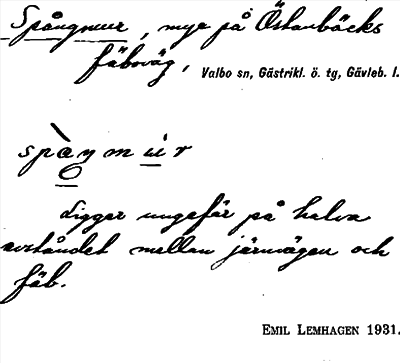 Spångmur, myr på Östanbäcks
fäboväg,
Valbo sn, Gästrikl. ö. tg, Gävleb. l.
spàŋmùr
Ligger ungefär på halva
avståndet mellan järnvägen och
fäb.
EMIL LEMHAGEN 1931.